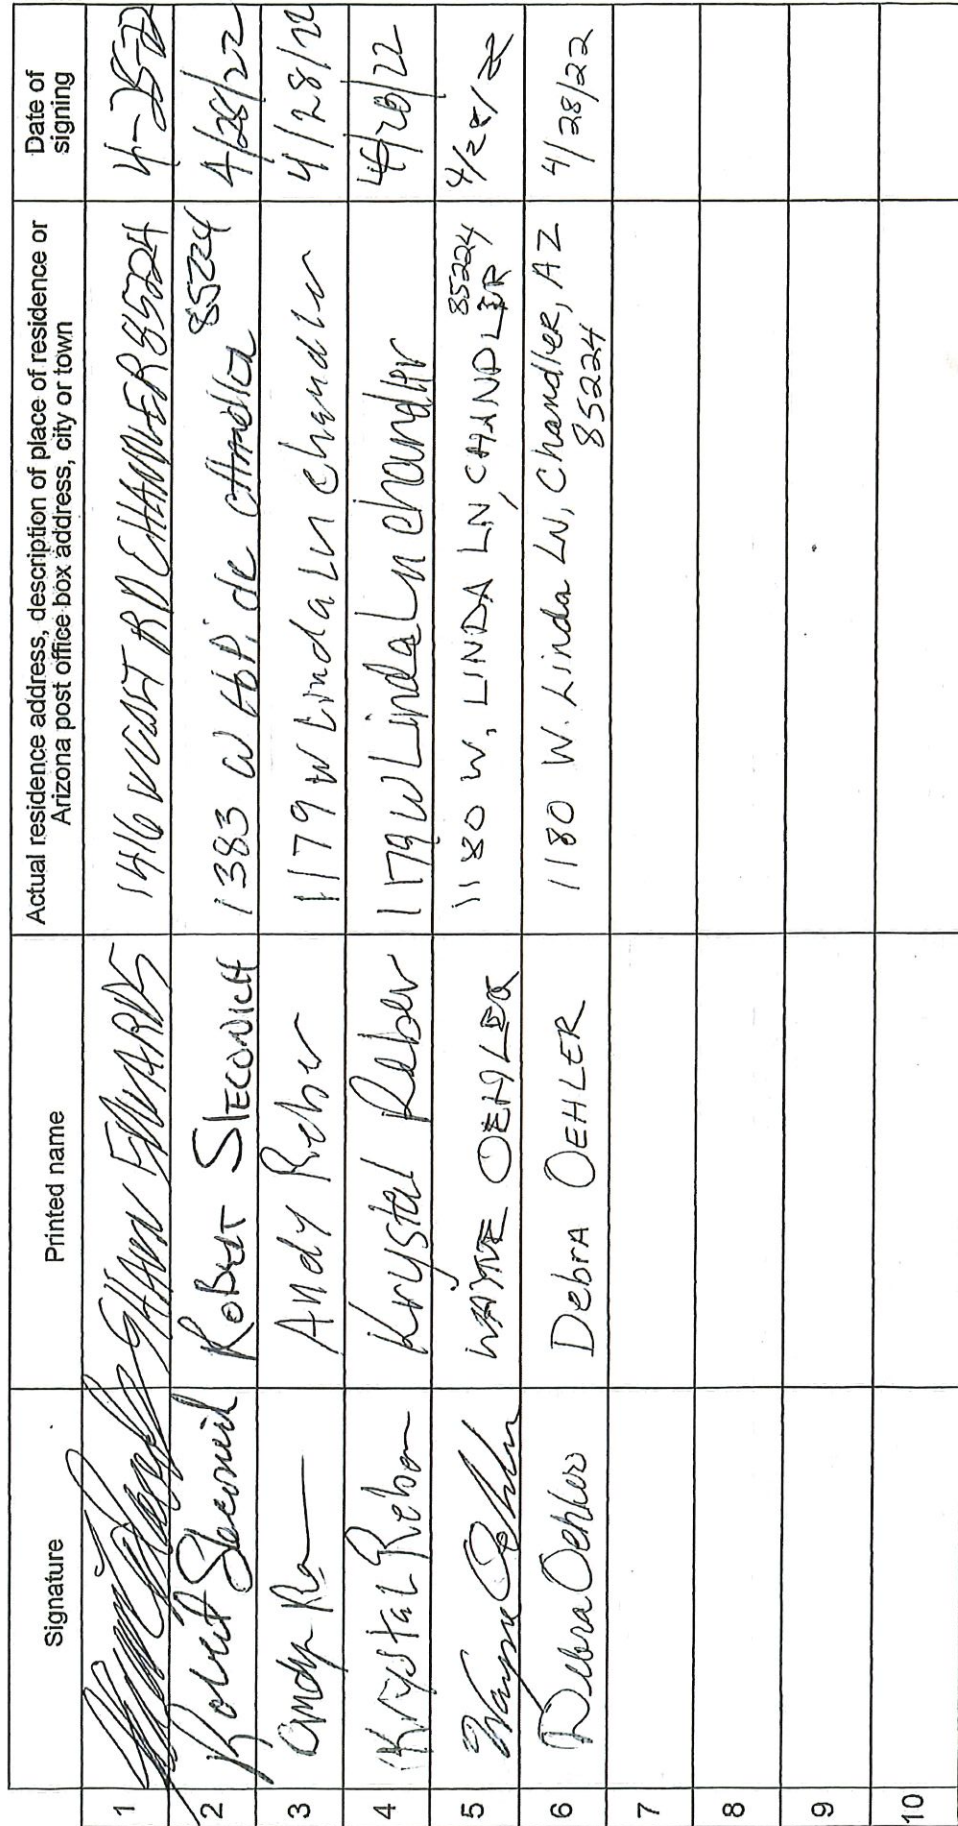 Signature
Printed name
Actual residence address, description of place of residence or
Arizona post office box address, city or town
Date of
signing
1
SHAWN EDWARDS
1416 W RD CHANDLER 85224
2
Robert Sleconich
ROBERT SLECONICH
1383 W de Chandler 85224
4/28/22
3
Andy
Andy Reber
1179 W Linda Ln Chandler
4/28/22
4
Krystal Reber
Krystal Reber
1179 W Linda Ln Chandler
5
Wayne Oehler
WAYNE OEHLER
1180 W. LINDA LN, CHANDLER 85224
4/28/22
6
Debra Oehler
DebrA OEHLER
1180 W. Linda LN, Chandler, AZ
85224
4/28/22
7
8
9
10